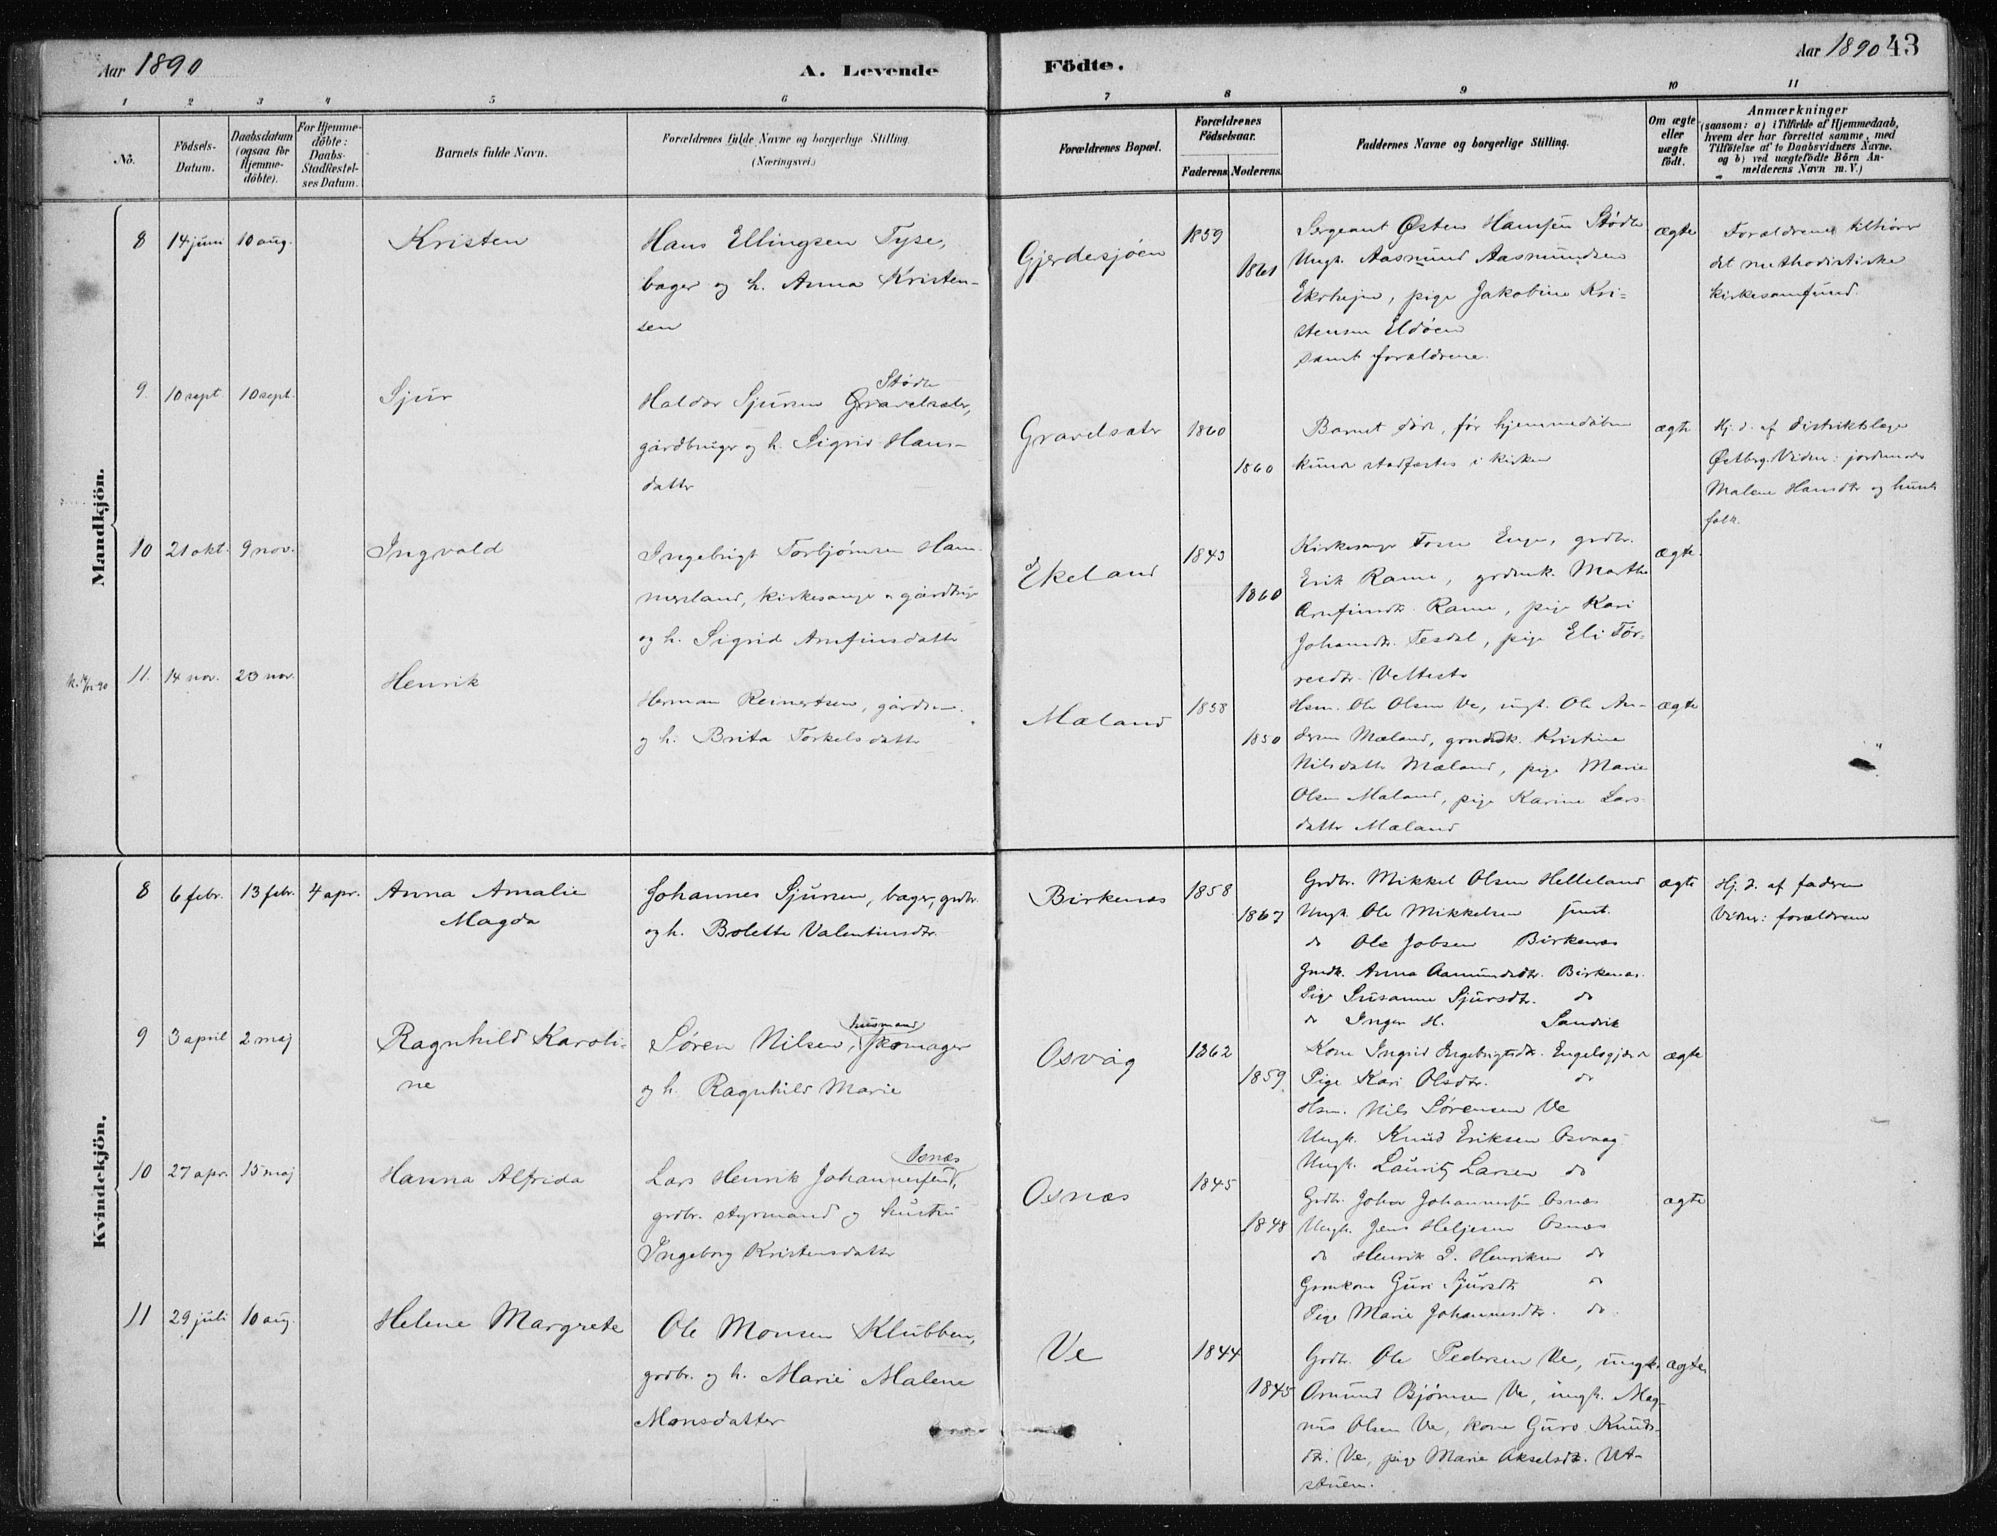 Aar 1890
A. Levende
Födte.
Aar 1890 43
1 2 3 4 5 6 7 8 9 10 11
No.
Födsels-
Datum.
Daabsdatum
(ogsaa for
Hjemme-
döbte).
For Hjemme-
döbte:
Daabs-
Stadfestel-
ses Datum.
Barnets fulde Navn.
Forældrenes fulde Navne og borgerlige Stilling.
(Næringsvei.)
Forældrenes Bopæl.
Forældrenes
Födselsaar.
Faderens. Moderens.
Faddernes Navne og borgerlige Stilling.
Om ægte
eller
uægte
födt.
Anmærkninger
(saasom: a) i Tilfælde af Hjemmedaab,
hvem der har forrettet samme, med
Tilföielse af to Daabsvidners Navne.
og b) ved uægtefödte Börn An-
melderens Navn m.V.)
Mandkjön.
8 14 juni 10 aug. Kristen
Hans Ellingsen Tyse,
bager og h. Anna Kristen-
sen
Gjerdesjøen
1859
1861
Sergeant Østen Hansen Stødle
Ungk. Aasmund Aasmundsen
pige Jakobine Kri-
stensen Eldøen
samt forældrene.
ægte
Forældrene tilhører
det methodistiske
kirkesamfund.
9. 10 sept. 10 sept. Sjur
Stødle
Haldor Sjursen Gravelsæter,
gårdbruger og h. Sigrid Hans-
datter
Gravelsæter
1860
1860
Barnet døde, før hjemmedåben
kunde stadfæstes i kirken
ægte
Hj. d. af distriktslæge
Østberg. Vidner: jordemoder
Malene Hansdtr og hunds
folk.
10 21 okt. 9 nov. Ingvald
Ingebrigt Torbjørnsen Ham-
mersland, kirkesanger & gårdbruger
og h. Sigrid Arnfinsdatter
Ekeland
1843
1860
Kirkesanger Enge, grdbr.
Erik Ramme, grdmk. Marthe
Arnfinsdtr. Ramme, pige Kari
Johannsdtr. Tesdal, pige Eli Tør-
resdtr. Velteste
ægte
11. 14 nov. 23 nov. Henrik
Herman Reinertsen, gårdm.
og h. Brita Torkelsdatter
Mæland
1858
1850
Hsm. Ole Olsen Ve, ungk. Ole An-
dersen Mæland, grmdk. Kristine
Nilsdatter Mæland, pige Marie
Olsen Mæland, pige Karine Lars-
datter Mæland
ægte
Kvindekjön.
8 6 febr. 13 febr. 4 apr. Anna Amalie
Magda
Johannes Sjursen, bager, grdbr.
og h. Bolette Valentinsdtr.
Birkenæs
1858
1867
Grdbr. Mikkel Olsen Helleland
Ungk. Ole Mikkelsen
do Ole Jobsen Birkenæs
Grmdk. Anna Aamundsdtr. Birkenæs.
Pige Susanne Sjursdtr. do
do Inger H. Sandvik
ægte
Hj. d. af faderen
Vidner: forældrene
9 3 april 2 maj Ragnhild Karoli-
ne
husmand
Søren Nilsen, skomager
og h. Ragnhild Marie
Osvåg
1862
1859
Kone Ingrid Ingebrigtsdtr. Engelsgjærde
Pige Kari Olsdtr. do
Hsm. Nils Sørensen Ve
Ungk. Knud Eriksen Osvaag.
Ungk. Lauritz Larsen do
ægte
10 27 apr. 15 maj Hanna Alfrida
Osnæs
Lars Henrik Johannessen,
grdbr. styrmand og hustru
Ingeborg Kristensdatter
Osnæs
1845
1848
Grdbr. Johan Johannessen Osnæs
Ungk. Jens Heljesen Osnæs
do Henrik L. Henriksen do
Grmkone Guri Sjursdtr do
Pige Marie Johannesdtr. do.
ægte
11 29 juli 10 aug. Helene Margrete
Ole Monsen Klubben,
grdbr. og h. Marie Malene
Monsdatter
Ve
1844
1845
Grdbr. Ole Pedersen Ve, ungk.
Osmund Bjørnsen Ve, ungk. Mag-
nus Olsen Ve, kone Guro Knuds-
dtr. Ve, pige Marie Akselsdtr. Ut-
stuen.
ægte